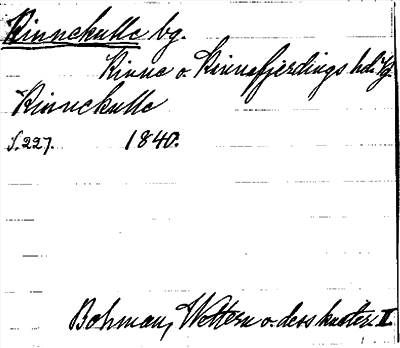 Kinnekulle bg.
Kinne o. Kinnefjerdings hd. Vg.
Kinnekulle
S. 227. 1840.
Bohman, Wettern o. dess kuster. II